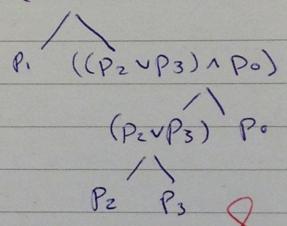 p₁ ((p₂ ∨ p₃) ∧ p₀)
(p₂ ∨ p₃) p₀
p₂ p₃